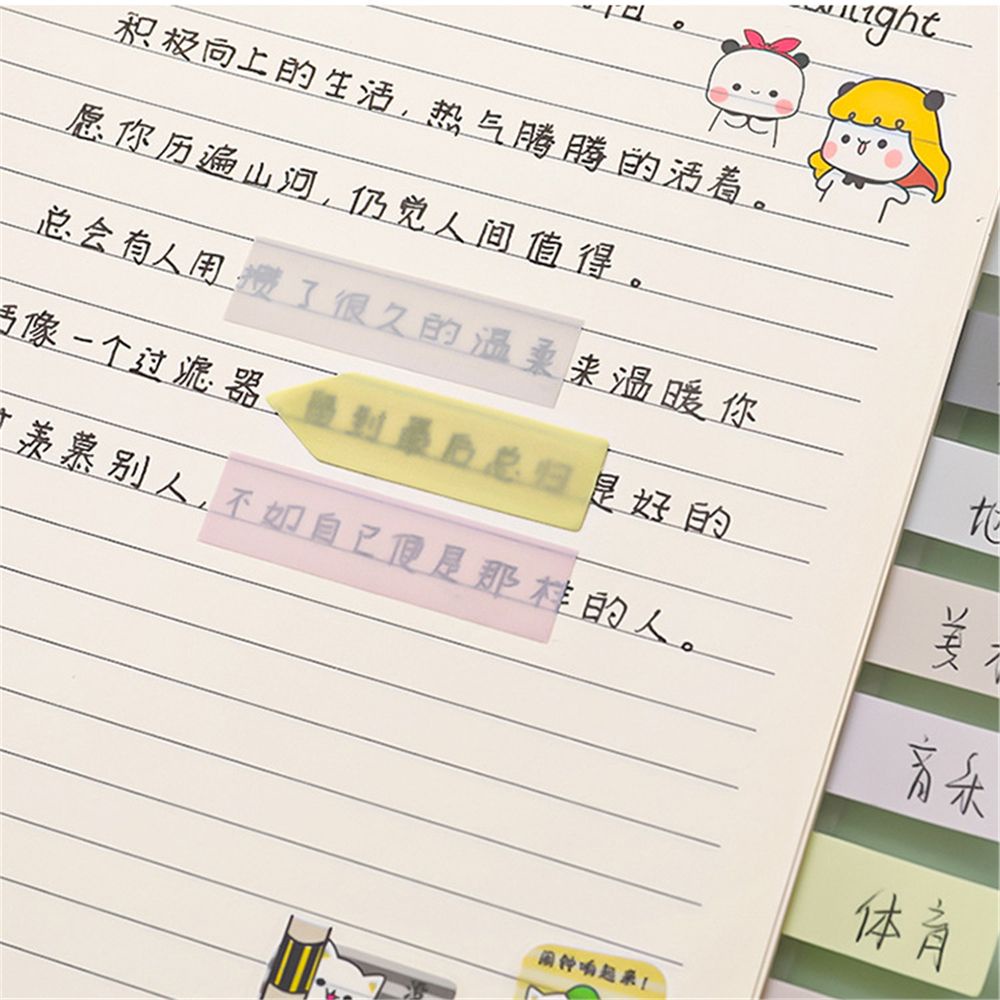 积极向上的生活,热气腾腾的活着。
愿你历遍山河,仍觉人间值得。
总会有人用攒了很久的温柔来温暖你
活像一个过滤器到最后总归是好的
羡慕别人,不如自己便是那样的人。
地
美
音乐
体育
闹钟响起来!